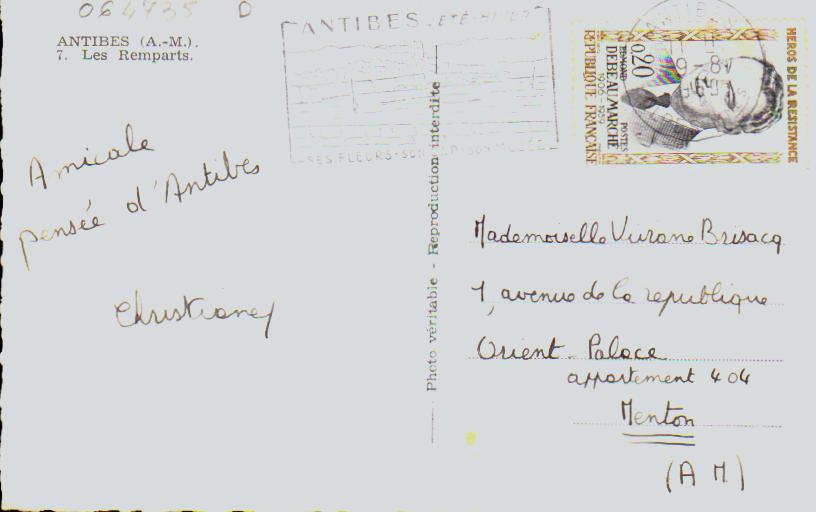 064735 D
ANTIBES (A.-M.).
7. Les Remparts.
ANTIBES
SES FLEURS
ANTIBES
HEROS DE LA RESISTANCE
0,20
POSTES
EDMOND
DEBEAUMARCHÉ
1906-1959
REPUBLIQUE FRANÇAISE
Amicale
pensée d'Antibes
Christiane
Photo véritable - Reproduction interdite
Mademoiselle Viviane Brisacq
1, avenue de la republique
Orient-Palace
appartement 404
Menton
(A M)